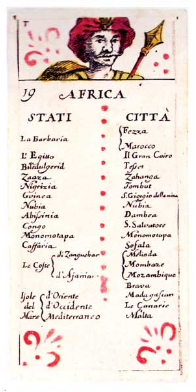 T
19 AFRICA
STATI CITTÀ
La Barbaria Fezza
Marocco
L' Egitto Il Gran Cairo
Biledulgerid Tesset
Zaara Zahanga
Nigrizia Tombut
Guinea S. Giorgio della mina
Nubia Nubia
Abissinia Dambea
Congo S. Salvatore
Monomotapa Monomotapa
Caffaria Sofala
Le Coste di Zanguebar Melinda
Mombaze
d'Ajaniu Mozambique
Brava
Isole d'Oriente Madagascar
del d'Occidente Le Canarie
Mare Mediterraneo Malta